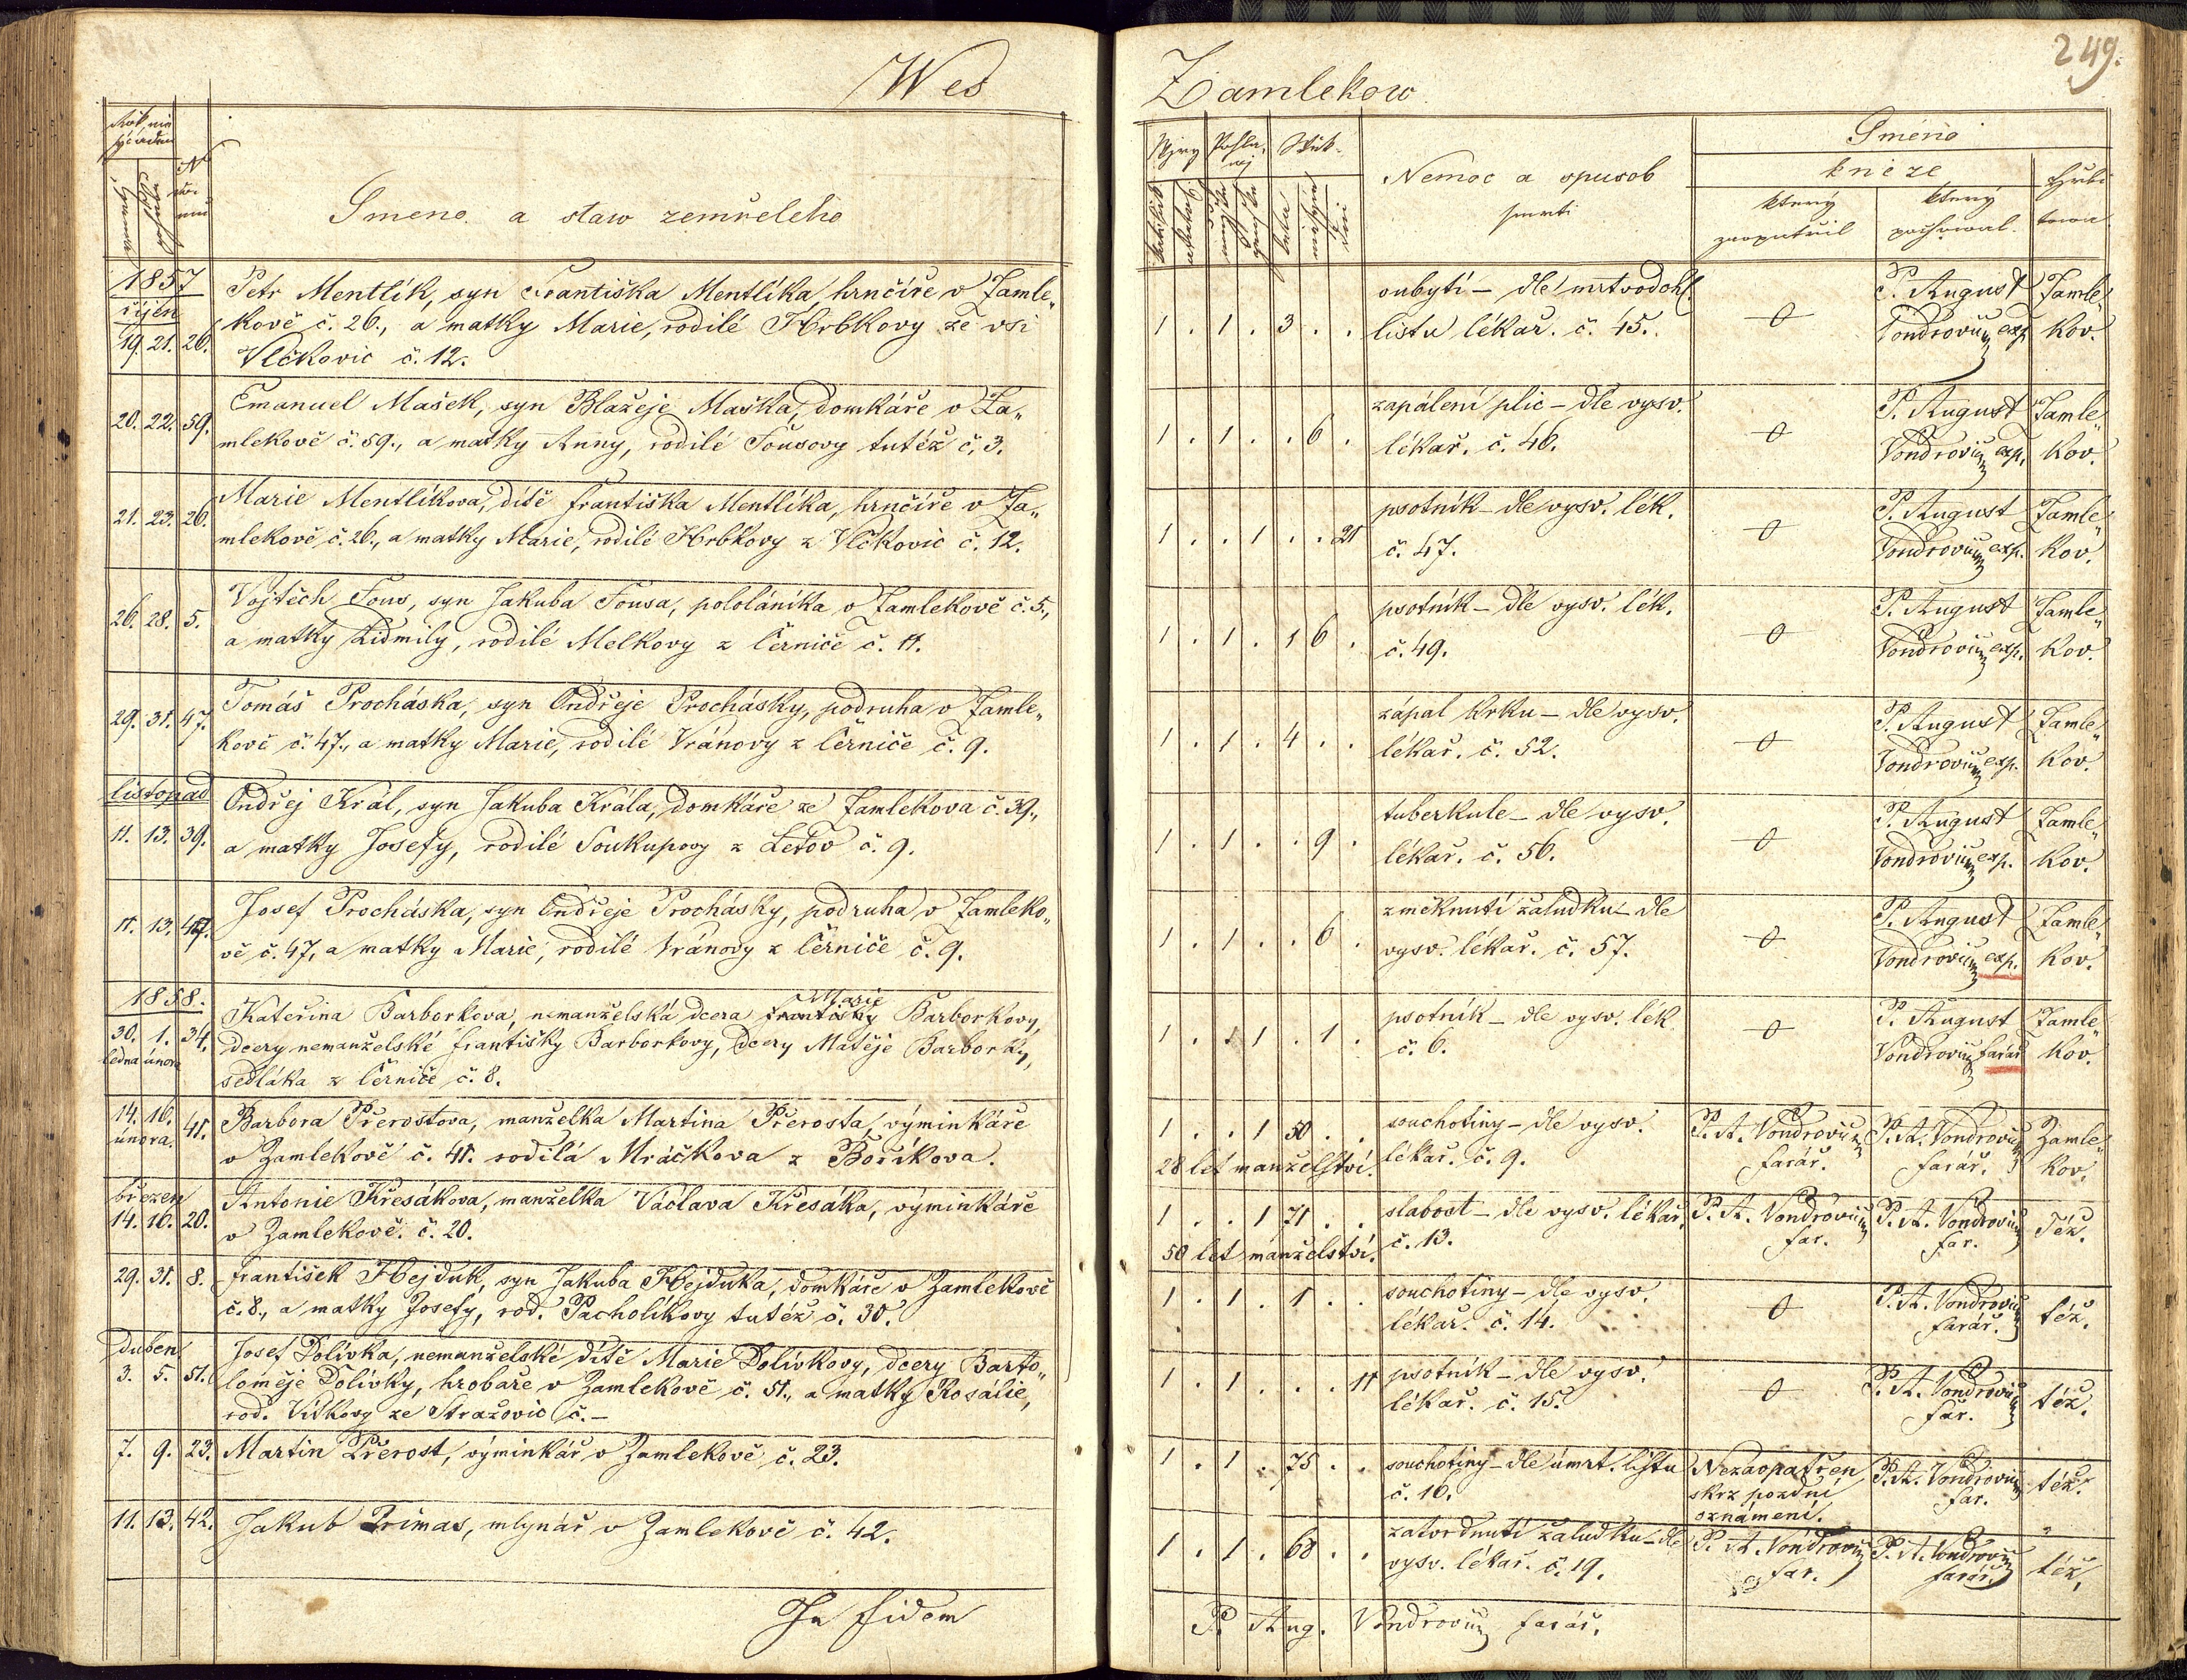 Wes
Zamlekow.
249.
Rok, mě
N
Jmeno a staw zemřeleho
Wjry
Pohla
wj
Wěk
Nemoc a spusob
smrti
Jméno
kněze
který
zaopatřil
který
pochowal
Hrbi
towa
1857
říjen
19. 21. 26.
Petr Mentlík, syn Františka Mentlíka, hrnčíře v Zamle„
kově č. 26., a matky Marie, rodilé Hrbkovy ze vsi
Vlčkovic č. 12.
1 . 1 . 3 . .
oubytí – dle mrtvodohl.
listu lékař. č. 45.
0
P. August
Vondrovic exp.
Zamle„
kov.
20. 22. 59.
Emanuel Mašek, syn Blažeje Maška, domkáře v Za„
mlekově č. 59., a matky Anny, rodilé Fousovy tutéž č. 3.
1 . 1 . . 6 .
zapálení plic – dle vysv.
lékař. č. 46.
0
P. August
Vondrovic exp.
Zamle„
kov.
21. 23. 26.
Marie Mentlíkova, dítě Františka Mentlíka, hrnčíře v Za„
mlekově č. 26., a matky Marie, rodilé Hrbkovy z Vlčkovic č. 12.
1 . . 1 . . 21
psotník – dle vysv. lék.
č. 47.
0
P. August
Vondrovic exp.
Zamle„
kov.
26. 28. 5.
Vojtěch Fous, syn Jakuba Fousa, pololáníka v Zamlekově č. 5.,
a matky Lidmily, rodilé Melkovy z Černíče č. 11.
1 . 1 . 1 6 .
psotník – dle vysv. lék.
č. 49.
0
P. August
Vondrovic exp.
Zamle„
kov.
29. 31. 47.
Tomáš Procháska, syn Ondřeje Prochásky, podruha v Zamle„
kově č. 47., a matky Marie, rodilé Vránovy z Černíče č. 9.
1 . 1 . 4 . .
zápal krku – dle vysv.
lékař. č. 52.
0
P. August
Vondrovic exp.
Zamle„
kov.
listopad
11. 13. 39.
Ondřej Král, syn Jakuba Krála, domkáře ze Zamlekova č. 39.,
a matky Josefy, rodilé Soukupovy z Letov č. 9.
1 . 1 . . 9 .
tuberkule – dle vysv.
lékař. č. 56.
0
P. August
Vondrovic exp.
Zamle„
kov.
11. 13. 47.
Josef Procháska, syn Ondřeje Prochásky, podruha v Zamleko„
vě č. 47, a matky Marie, rodilé Vránovy z Černíče č. 9.
1 . 1 . . 6 .
změknutí žaludku – dle
vysv. lékař. č. 57.
0
P. August
Vondrovic exp.
Zamle„
kov.
1858.
30. 1. 34.
ledna února
Marie
Kateřina Barborkova, nemanželská dcera Františky Barborkovy,
dcery nemanželské Františky Barborkovy, dcery Matěje Barborky,
sedláka z Černíče č. 8.
1 . . 1 . 1 .
psotník – dle vysv. lék.
č. 6.
0
P. August
Vondrovic farář
Zamle„
kov.
14. 16. 41.
února.
Barbora Přerostova, manželka Martina Přerosta, výminkáře
v Zamlekově č. 41. rodilá Mráčkova z Boříkova.
1 . . 1 50 . .
28 let manželství.
souchotiny – dle vysv.
lékař. č. 9.
P. A. Vondrovic
farář.
P. A. Vondrovic
farář.
Zamle„
kov.
březen
14. 16. 20.
Antonie Křesákova, manželka Václava Křesáka, výminkáře
v Zamlekově. č. 20.
1 . . 1 71 . .
50 let manželství.
slabost – dle vysv. lékař.
č. 13.
P. A. Vondrovic
far.
P. A. Vondrovic
far.
Též.
29. 31. 8.
František Hejduk, syn Jakuba Hejduka, domkáře v Zamlekově
č. 8., a matky Josefy, rod. Pacholíkovy tutéž č. 30.
1 . 1 . 1 . .
souchotiny – dle vysv.
lékař. č. 14.
0
P. A. Vondrovic
farář.
též.
Duben
3. 5. 51.
Josef Dolívka, nemanželské dítě Marie Dolívkovy, dcery Barto„
loměje Dolívky, hrobaře v Zamlekově č. 51., a matky Rosálie,
rod. Vítkovy ze Stražovic č. –
1 . 1 . . . 11
psotník – dle vysv.
lékař. č. 15.
0
P. A. Vondrovic
far.
též.
7. 9. 23.
Martin Přerost, výminkář v Zamlekově č. 23.
1 . 1 . 75 . .
souchotiny – dle úmrt. listu
č. 16.
Nezaopatřen
skrz pozdní
oznámení.
P. A. Vondrovic
far.
též.
11. 13. 42.
Jakub Primas, mlynář v Zamlekově č. 42.
1 . 1 . 68 . .
zatvrdnutí žaludku – dle
vysv. lékař. č. 19.
P. A. Vondrovic
far.
P. A. Vondrovic
farář.
též.
In fidem
P. Aug. Vondrovic farář.